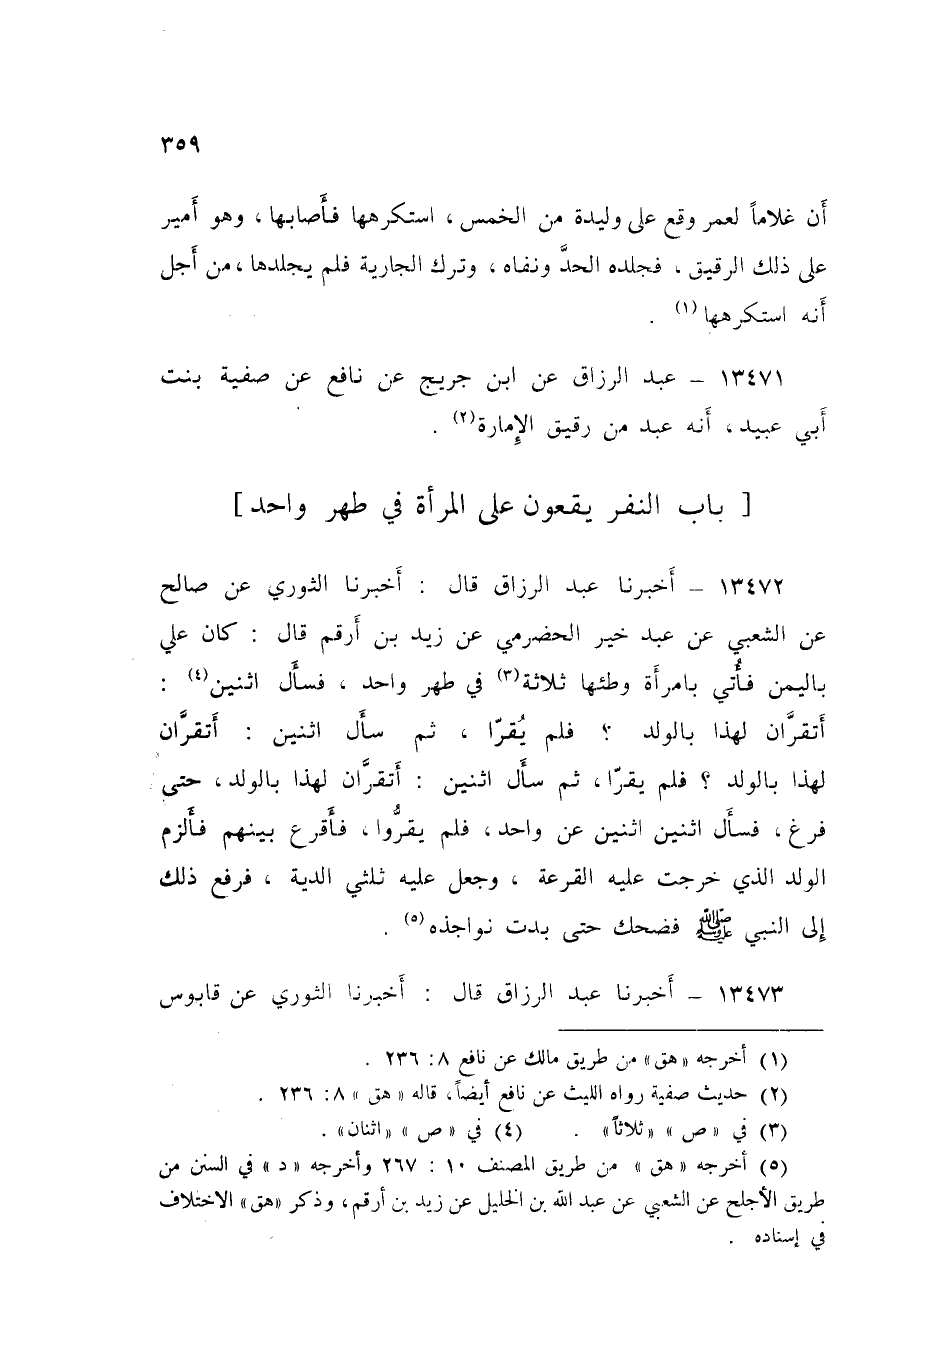 ٣٥٩
أَن غلاماً لعمر وقع على وليدة من الخمس ، استكرهها فأَصابها ، وهو أَمير
على ذلك الرقيق . فجلده الحدَّ ونفاه ، وترك الجارية فلم يجلدها ، من أَجل
أَنه استكرهها (١) .
١٣٤٧١ – عبد الرزاق عن ابن جريج عن نافع عن صفية بنت
أَبي عبيد ، أَنه عبد من رقيق الإِمارة(٢) .
[ باب النفر يقعون على المرأة في طهر واحد ]
١٣٤٧٢ – أَخبرنا عبد الرزاق قال : أَخبرنا الثوري عن صالح
عن الشعبي عن عبد خير الحضرمي عن زيد بن أَرقم قال : كان علي
باليمن فأُتي بامرأَة وطئها ثلاثة(٣) في طهر واحد ، فسأَل اثنين(٤) :
أَتقرَّان لهذا بالولد ؟ فلم يُقرّا ، ثم سأَل اثنين : أَتقرَّان
لهذا بالولد ؟ فلم يقرّا ، ثم سأَل اثنين : أَتقرَّان لهذا بالولد ، حتى
فرغ ، فسأَل اثنين اثنين عن واحد ، فلم يقرُّوا ، فأَقرع بينهم فأَلزم
الولد الذي خرجت عليه القرعة ، وجعل عليه ثلثي الدية ، فرفع ذلك
إِلى النبي ﷺ فضحك حتى بدت نواجذه(٥) .
١٣٤٧٣ – أَخبرنا عبد الرزاق قال : أَخبرنا الثوري عن قابوس
(١) أخرجه «هق» من طريق مالك عن نافع ٨: ٢٣٦ .
(٢) حديث صفية رواه الليث عن نافع أيضاً، قاله «هق» ٨: ٢٣٦ .
(٣) في «ص» «ثلاثاً» . (٤) في «ص» «اثنان» .
(٥) أخرجه «هق» من طريق المصنف ١٠ : ٢٦٧ وأخرجه «د» في السنن من
طريق الأجلح عن الشعبي عن عبد الله بن الخليل عن زيد بن أرقم، وذكر «هق» الاختلاف
في إسناده .